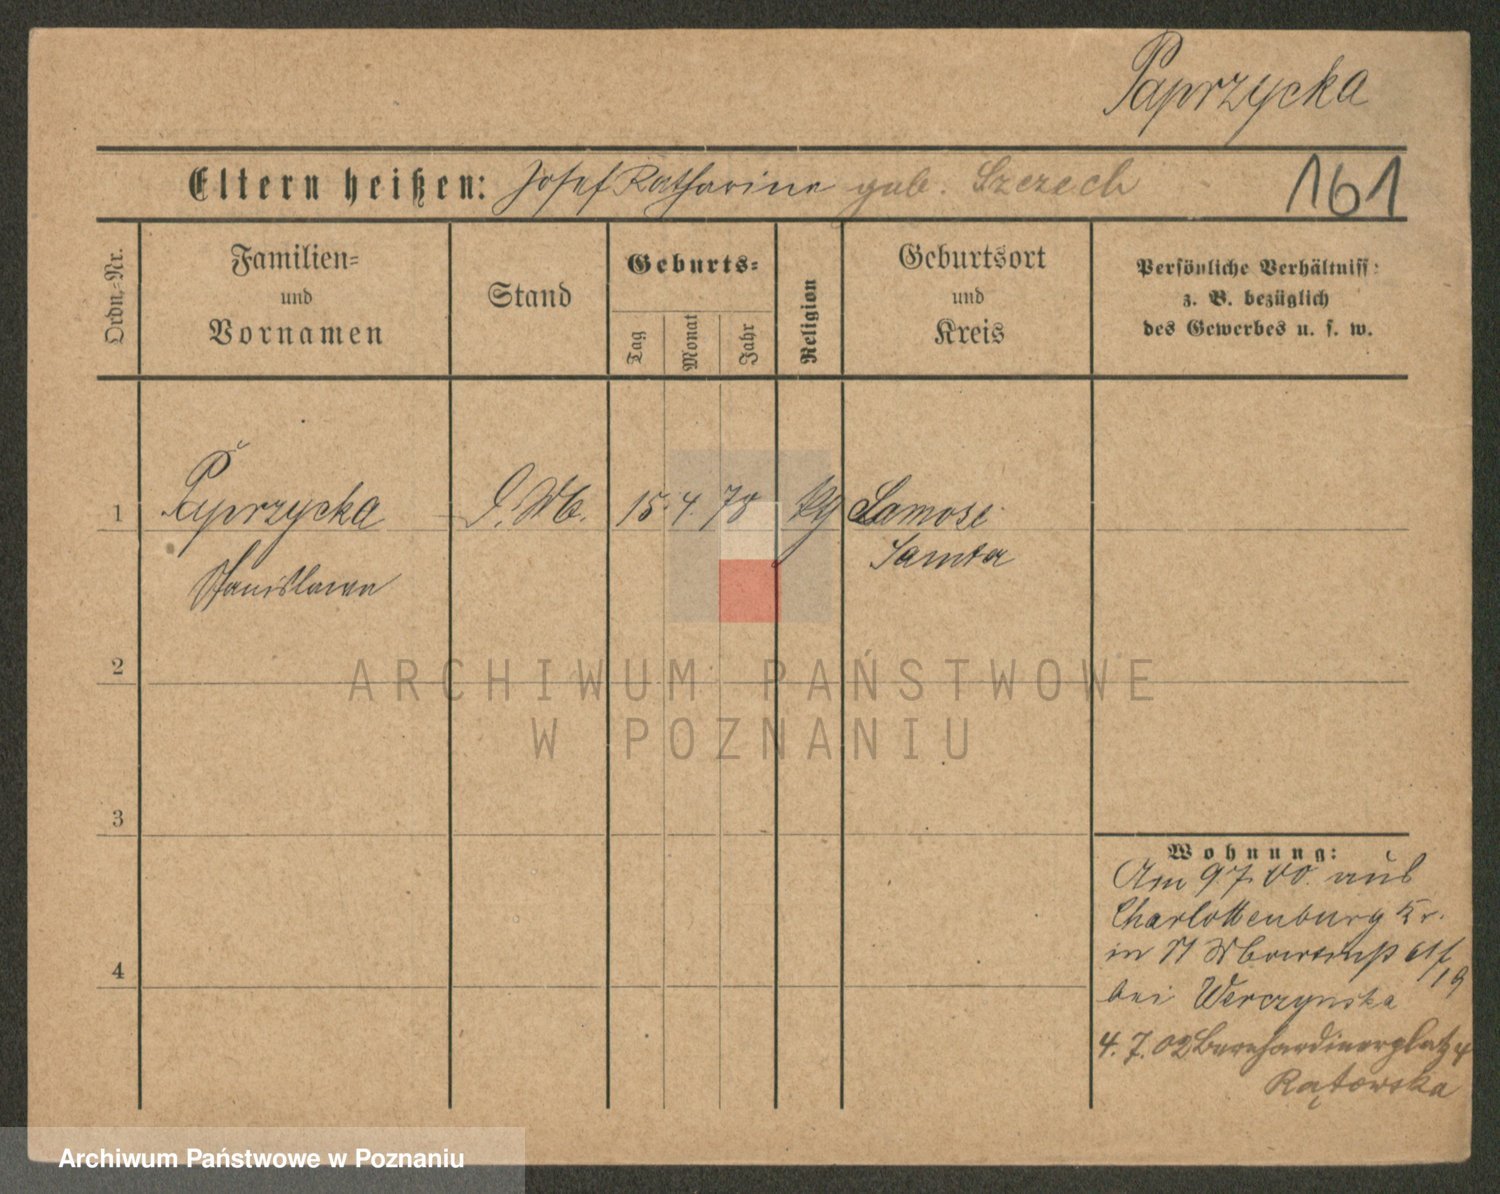 Paprzycka
Eltern heißen: Josef Katharine geb. Szczech
161
Ordn.-Nr.
Familien=
und
Vornamen
Stand
Geburts=
Tag
Monat
Jahr
Religion
Geburtsort
und
Kreis
Persönliche Verhältniss:
z. B. bezüglich
des Gewerbes u. s. w.
1
Paprzycka
15. 4. 78
Samter
Stanislawa
2
ARCHIWUM PAŃSTWOWE
W POZNANIU
3
Wohnung:
Am 9.7.00. aus
Charlottenburg Kr.
in
bei Werczynska
4
4. 7. 02 Bernhardinerplatz 4
Ratowska
Archiwum Państwowe w Poznaniu